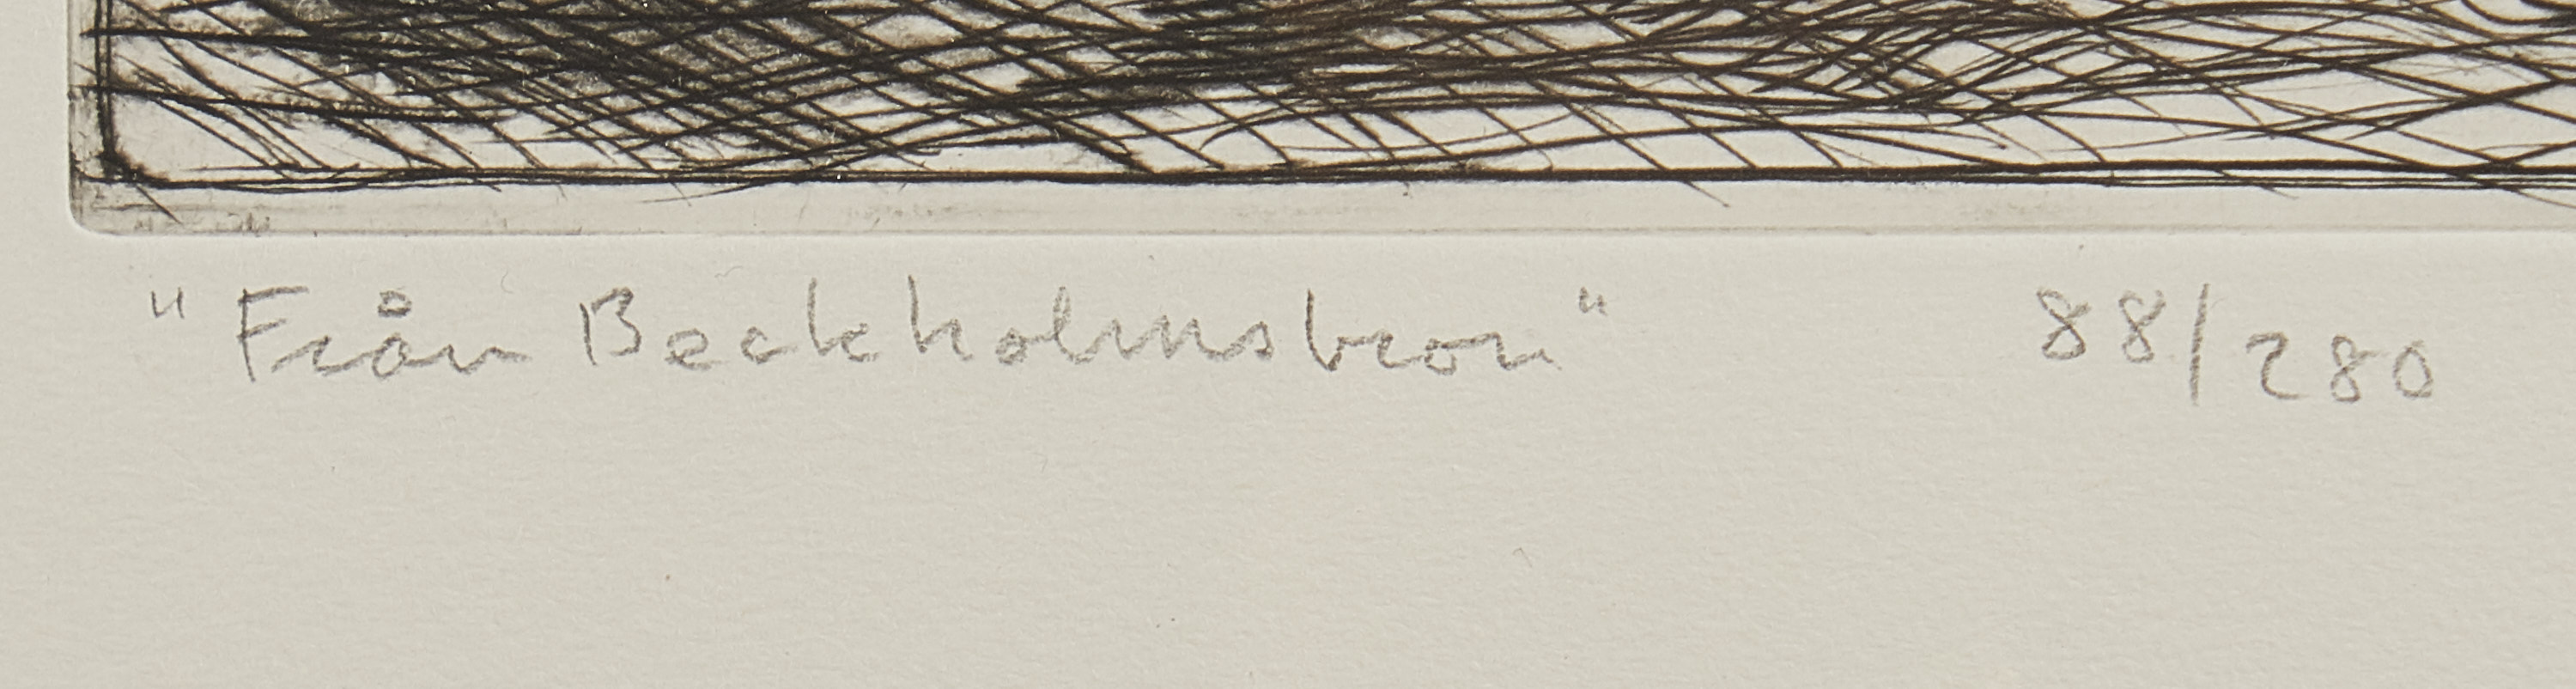 "Från Beckholmsbron" 88/280